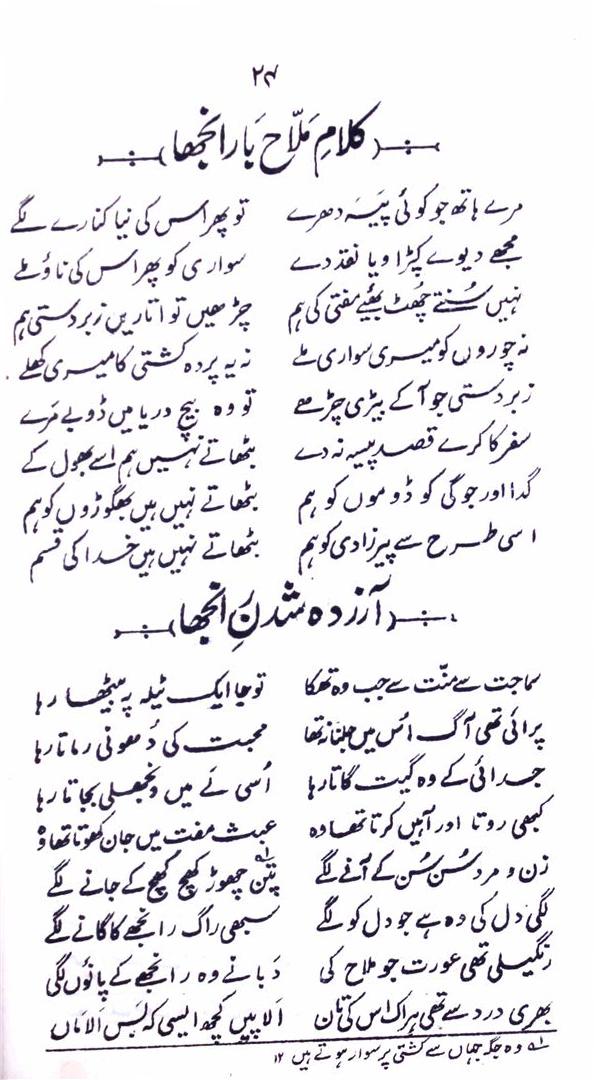 ۲۴
کلامِ ملّاح با رانجھا
مرے ہاتھ جو کوئی پَیسَہ دھرے تو پھر اس کی نیا کنارے لگے
مجھے دیوے کپڑا ویا نقد دے سواری کو پھر اس کی ناؤ ملے
نہیں سُنتے چُھٹ بھیّے مفتی کی ہم چڑھیں تو اتاریں زبردستی ہم
نہ چوروں کو میری سواری ملے نہ یہ پردہ کشتی کا میری کھلے
زبردستی جو آکے بیڑی چڑھے تو وہ بیچ دریا میں ڈوبے مَرے
سفر کا کرے قصد پیسہ نہ دے بٹھاتے نہیں ہم اسے بھول کے
گدا اور جوگی کو ڈوموں کو ہم بٹھاتے نہیں ہیں بھگوڑوں کو ہم
اسی طرح سے پیرزادی کو ہم بٹھاتے نہیں ہیں خدا کی قسم
آرزدہ شدنِ رانجھا
سماجت سے منّت سے جب وہ تھکا تو جا ایک ٹیلہ پہ بیٹھا رہا
پرائی تھی آگ اُس میں جلتا نہ تھا محبت کی دُھونی رماتا رہا
جدائی کے وہ گیت گاتا رہا اُسی نَے میں ونجھلی بجاتا رہا
کبھی روتا اور آہیں کرتا تھا وہ عبث مفت میں جان کھوتا تھا وہ
زن و مرد سُن سُن کے آنے لگے پتن ؂۱ چھوڑ کھچ کھچ کے جانے لگے
لگی دل کی وہ ہے جو دل کو لگے سبھی راگ رانجھے کا گانے لگے
رنگیلی تھی عورت جو ملاح کی دَبانے وہ رانجھے کے پاؤں لگی
بھری درد سے تھی ہر اک اس کی تان اَلاپیں کچھ ایسی کہ بَس اَلاماں
؂۱ وہ جگہ جہاں سے کشتی پر سوار ہوتے ہیں ۱۲